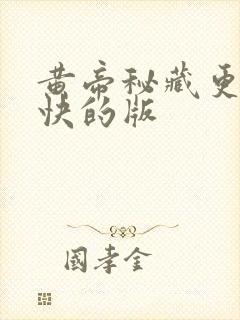 黄帝秘藏更
快的版
國孝金